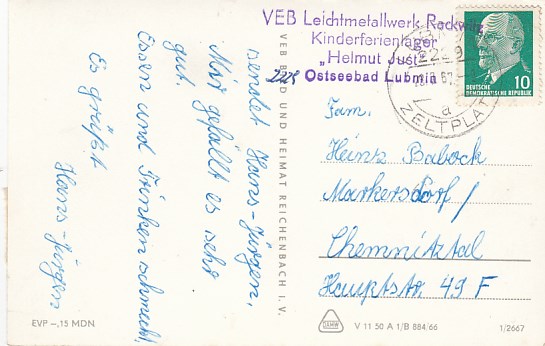 VEB Leichtmetallwerk Rackwitz
Kinderferienlager
„Helmut Just"
2228 Ostseebad Lubmin
2229
67
a
ZELTPLAT
10
DEUTSCHE
DEMOKRATISCHE REPUBLIK
sendet Hans-Jürgen,
Mir gefällt es sehr
gut.
Essen und Trinken schmeckt.
Es grüßt
Hans-Jürgen
VEB BILD UND HEIMAT REICHENBACH I. V.
Fam.
Heinz Babock
Markersdorf/
Chemnitztal
Hauptstr 49 F
EVP –,15 MDN
V 11 50 A 1/B 884/66
1/2667